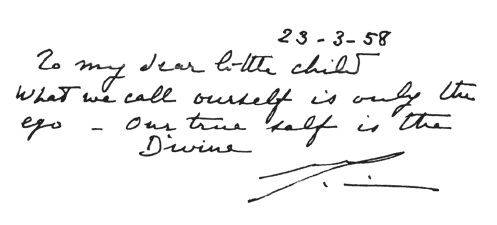 23-3-58
To my dear little child
What we call ourself is only the
ego - Our true self is the
Divine